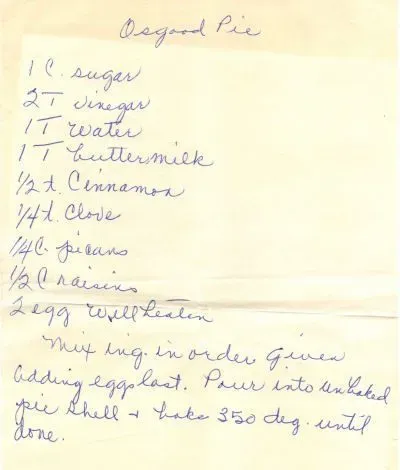 Osgood Pie
1 C. sugar
2T vinegar
1 T water
1 T buttermilk
1/2 t. Cinnamon
1/4 t. Clove
1/4 C. picans
1/2 C raisins
2 egg well beaten
Mix ing. in order given
adding eggs last. Pour into unbaked
pie shell + bake 350 deg. until
done.